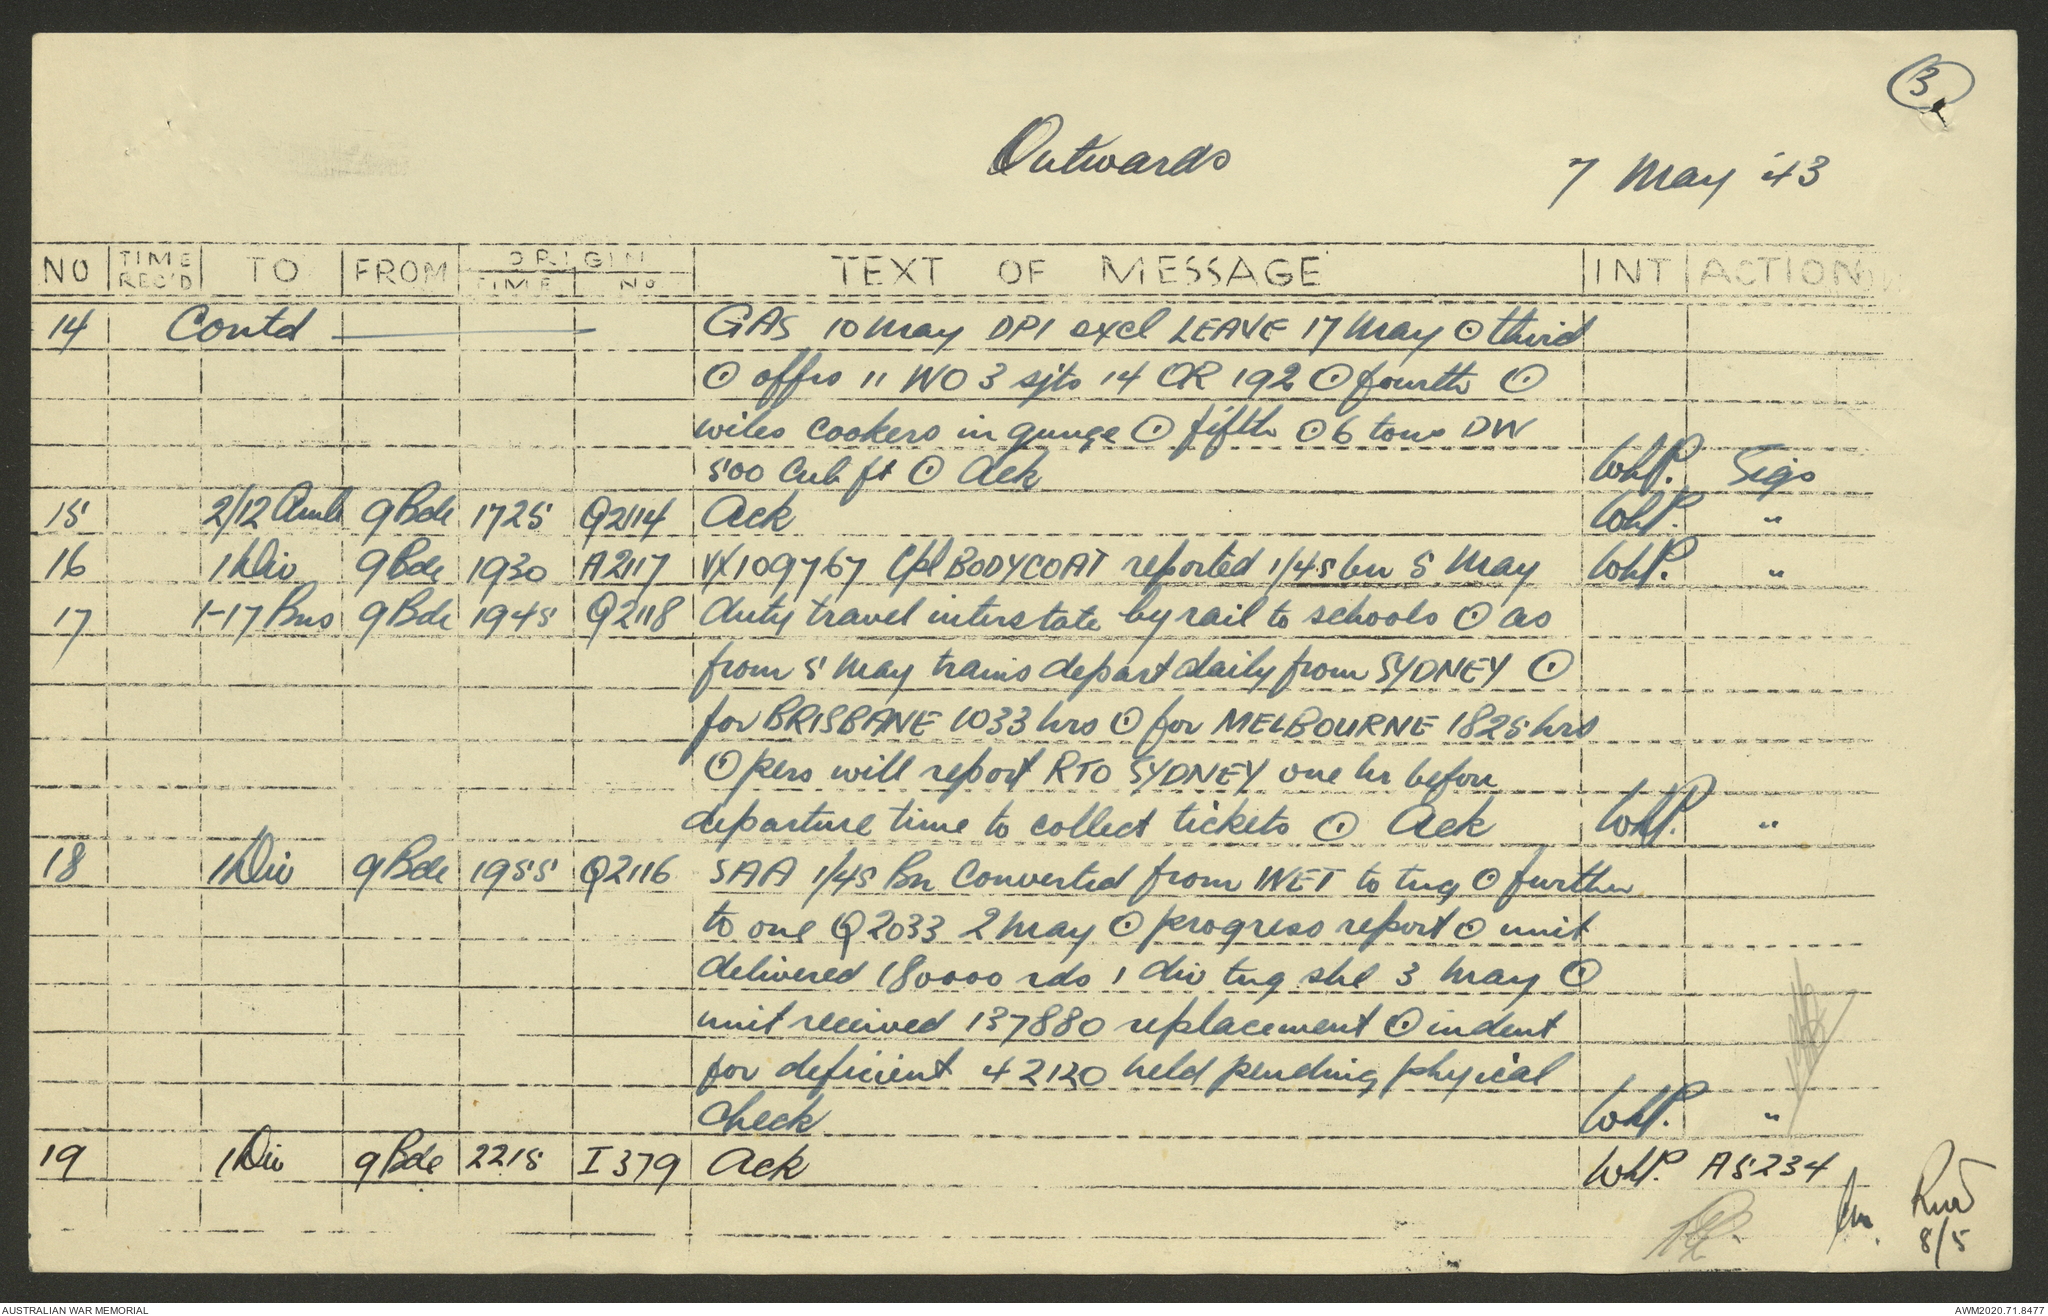 3
Outwards
7 May '43
NO TIME REC'D TO FROM ORIGIN TIME NO TEXT OF MESSAGE INT ACTION
14 Contd GAS 10 May DP1 excl LEAVE 17 May ⊙ third
⊙ offrs 11 WO 3 sjts 14 OR 192 ⊙ fourth ⊙
wiles cookers in gunge ⊙ fifth ⊙ 6 tons DW
500 Cub ft ⊙ Ack WhP. Sigs
15 2/12 Amb 9 Bde 1725 Q2114 Ack WhP. "
16 1 Div 9 Bde 1930 A2117 VX109767 Cpl BODYCOAT reported 1/45 bn 5 May WhP. "
17 1-17 Bns 9 Bde 1945 Q2118 duty travel interstate by rail to schools ⊙ as
from 5 May trains depart daily from SYDNEY ⊙
for BRISBANE 1033 hrs ⊙ for MELBOURNE 1825 hrs
⊙ pers will report RTO SYDNEY one hr before
departure time to collect tickets ⊙ Ack WhP. "
18 1 Div 9 Bde 1955 Q2116 SAA 1/45 Bn Converted from INET to tng ⊙ further
to one Q2033 2 May ⊙ progress report ⊙ unit
delivered 180000 rds 1 div tng 3 May ⊙
unit received 137880 replacement ⊙ indent
for deficient 42120 held pending phyical
check WhP. "
19 1 Div 9 Bde 2215 I379 Ack WhP. A5234
8/5
AUSTRALIAN WAR MEMORIAL AWM2020.71.8477